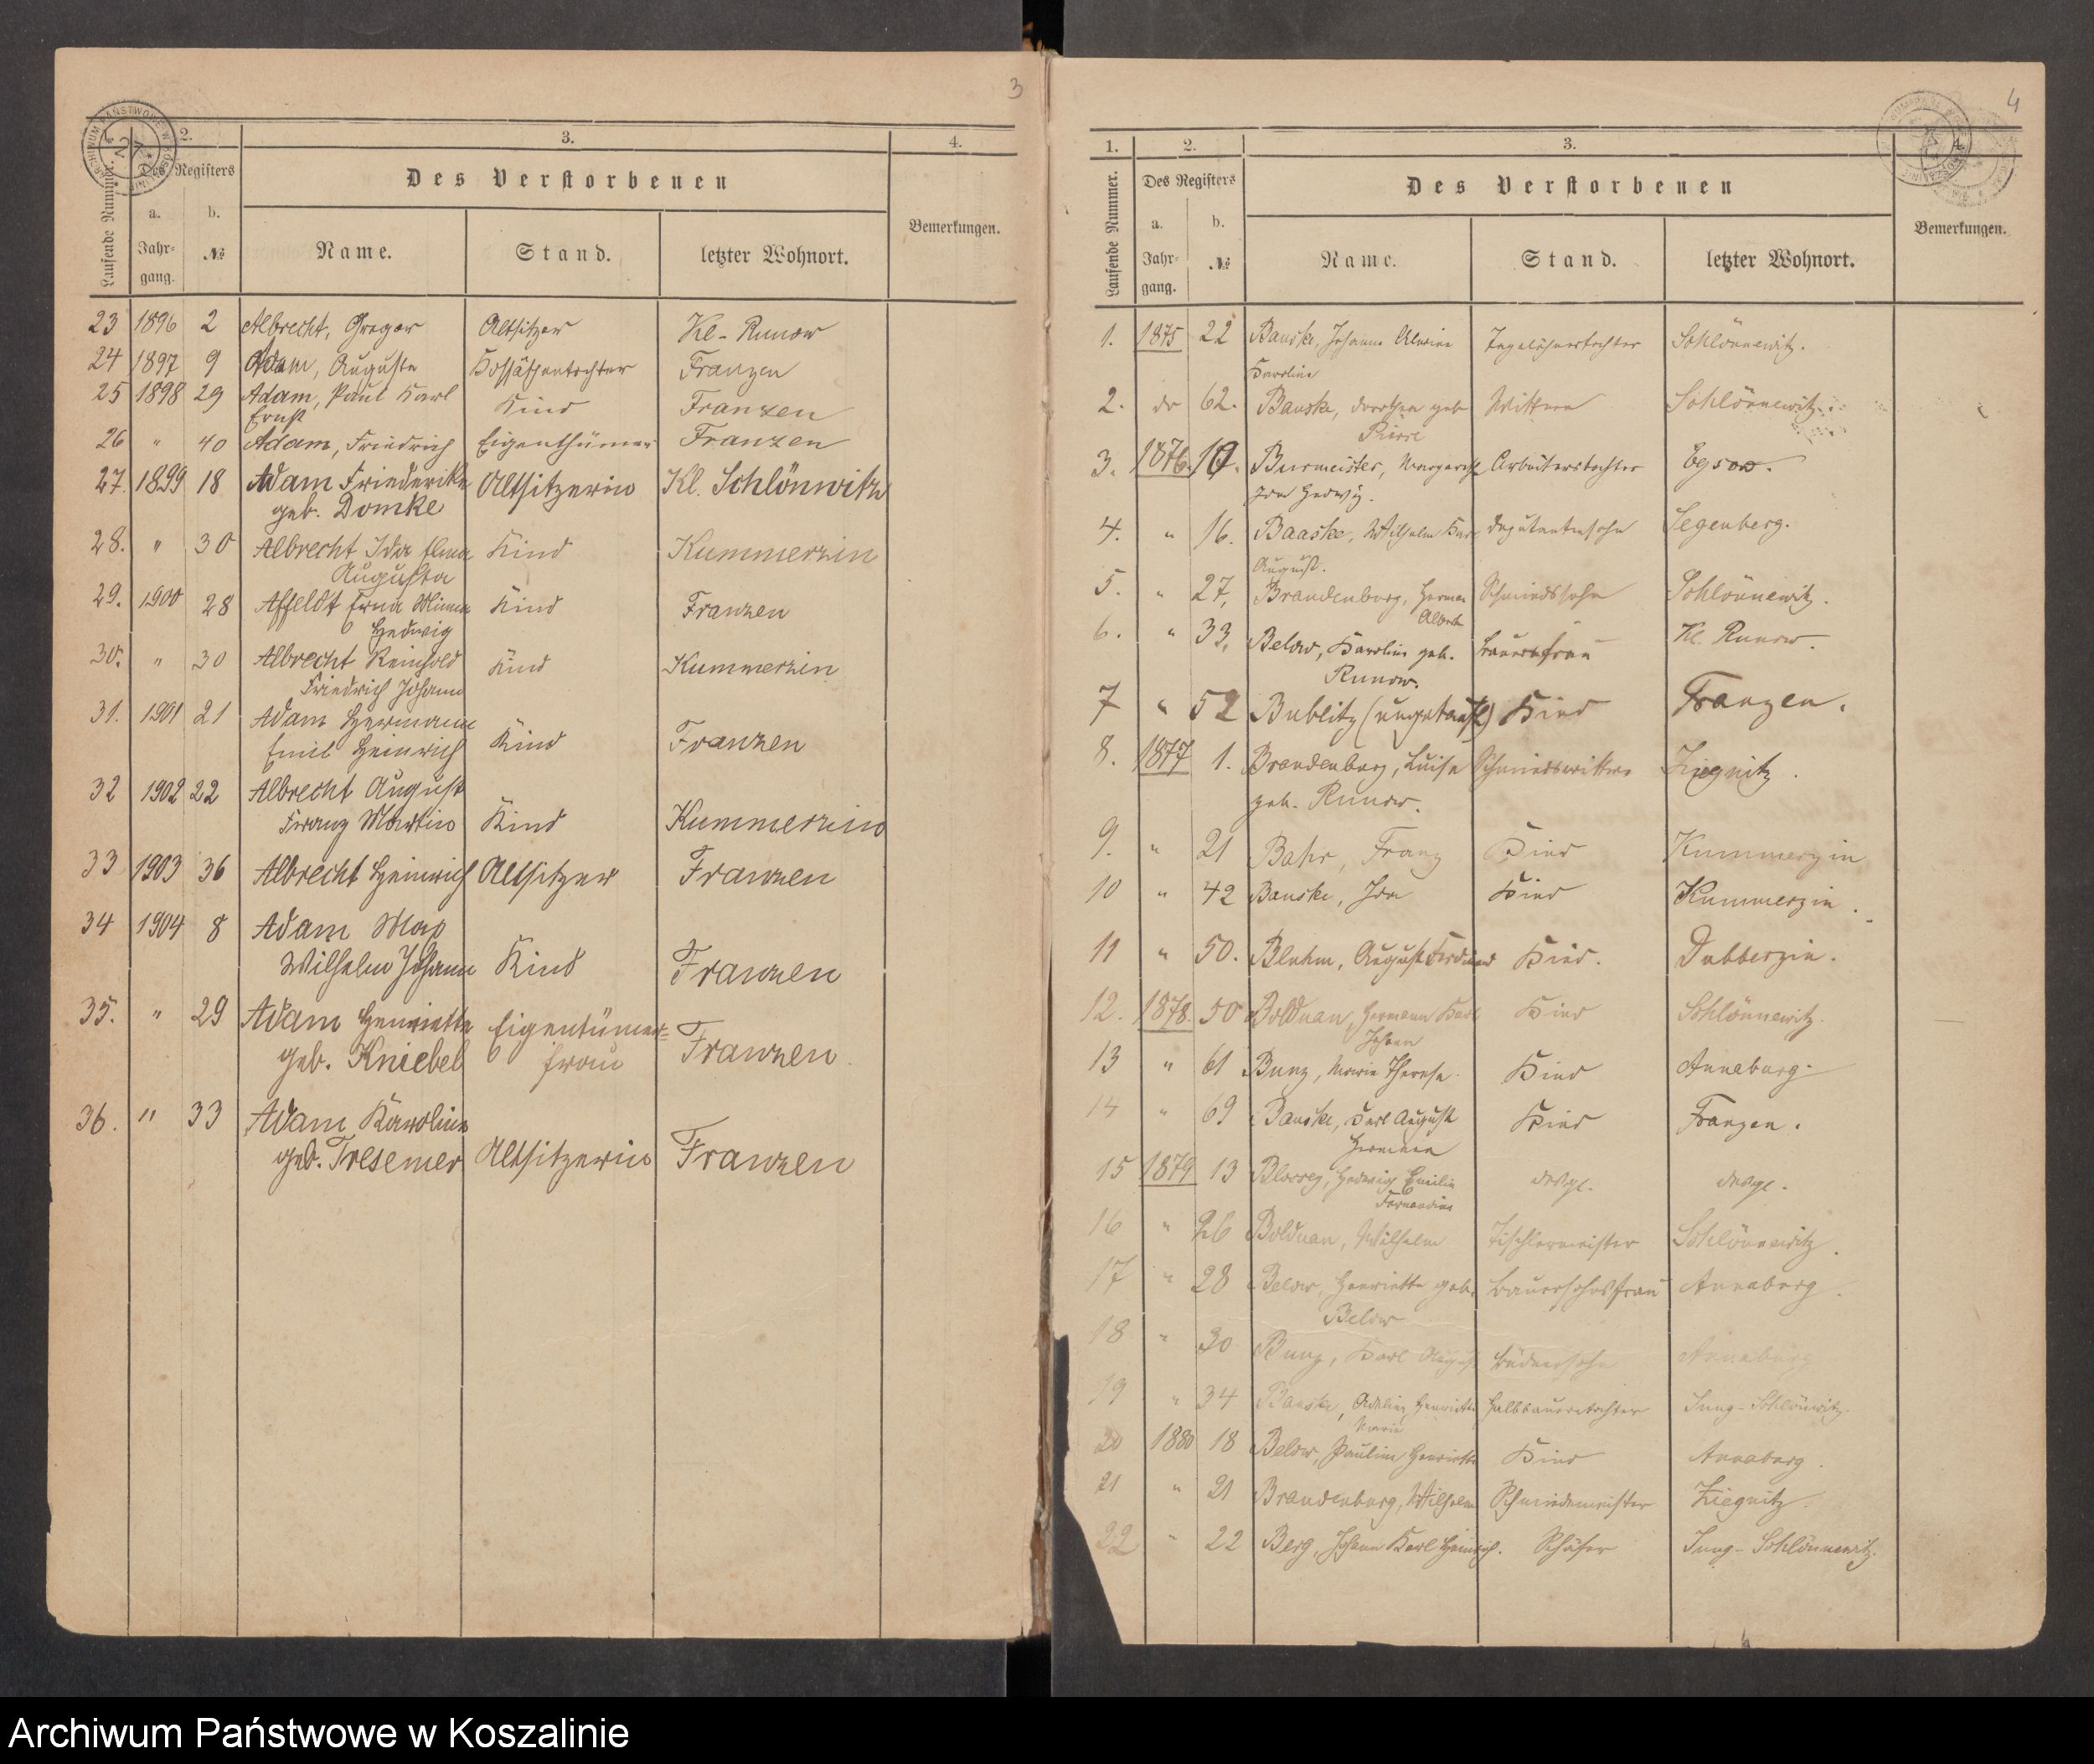 3
1. 2. 3. 4.
Des Registers
Des Verstorbenen
Laufende Nummer.
a. b.
Jahrgang. №
Name. Stand. letzter Wohnort.
Bemerkungen.
23 1896 2 Albrecht, Gregor Altsitzer Kl-Runow
24 1897 9 Adam, Auguste Kossäthentochter Franzen
25 1898 29 Adam, Paul Karl Kind Franzen
Ernst
26 " 40 Adam, Friedrich Eigenthümer Franzen
27. 1899 18 Adam Friederike Altsitzerin Kl. Schlönwitz
geb. Domke
28. " 30 Albrecht Ida Alma Kind Kummerzin
Augusta
29. 1900 28 Affeldt Erna Minna Kind Franzen
Hedwig
30. " 30 Albrecht Reinhold Kind Kummerzin
Friedrich Johann
31. 1901 21 Adam Hermann
Emil Heinrich Kind Franzen
32 1902 22 Albrecht August
Franz Martin Kind Kummerzin
33 1903 36 Albrecht Heinrich Altsitzer Franzen
34 1904 8 Adam Max
Wilhelm Johann Kind Franzen
35. " 29 Adam Henriette Eigentümer-
geb. Kniebel frau Franzen
36. " 33 Adam Karoline
geb. Tresemer Altsitzerin Franzen
4
1. 2. 3. 4.
Des Registers
Des Verstorbenen
Laufende Nummer.
a. b.
Jahrgang. №
Name. Stand. letzter Wohnort.
Bemerkungen.
1. 1875 22 Banske, Johanna Alwine Tagelöhnertochter Schlönnewitz.
Karoline
2. do 62. Banske, Dorothea geb Wittwe Schlönnewitz.
3. 1876. 10. Burmeister, Margarethe Arbeiterstochter Egsow.
Ida Hedwig.
4. " 16. Baaske, Wilhelm Karl Deputantensohn Segenberg.
August.
5. " 27, Brandenburg, Herman Schmiedssohn Schlönnewitz.
Albert
6. " 33, Below, Karoline geb. Bauersfrau Kl. Runow.
Runow.
7 " 52 Bublitz (ungetauft) Kind Franzen.
8. 1877 1. Brandenburg, Luise Schmiedswittwe Ziegnitz.
geb. Runow.
9. " 21 Bahr, Franz Kind Kummerzin
10 " 42 Banske, Ida Kind Kummerzin.
11 " 50. Bluhm, August Ferdinand Kind. Dubberzin.
12. 1878. 50 Bolduan, Hermann Karl Kind Schlönnewitz.
Johann
13 " 61 Bunz, Marie Therese Kind Annaburg.
14 " 69 Banske, Karl August Kind Franzen.
Hermann
15 1879 13 Hedwig Emilie desgl. desgl.
16 " 26 Bolduan, Wilhelm Tischlermeister Schlönnewitz.
17 " 28 Below, Henriette geb. Bauersohnsfrau Annaburg.
Below
18 " 30 Bunz, Karl August Büdnersohn Annaburg
19 " 34 Banske, Adeline Henriette Halbbauerntochter Jung-Schlönwitz.
Marie
20 1880 18 Below, Pauline Henriette Kind Annaburg.
21 " 21 Brandenburg, Wilhelm Schmiedemeister Ziegnitz.
22 " 22 Berg, Johann Karl Heinrich. Schäfer Jung-Schlönnewitz.
Archiwum Państwowe w Koszalinie